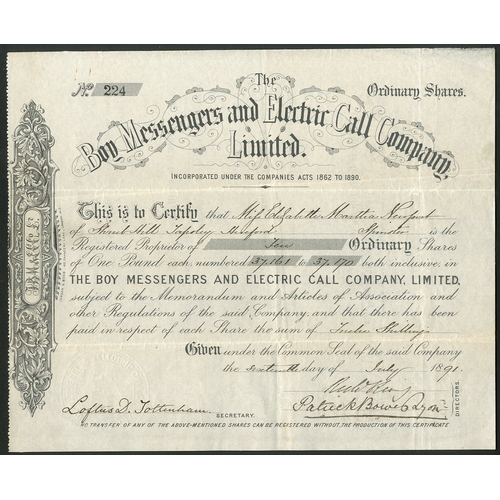 The
No. 224
Ordinary Shares.
Boy Messengers and Electric Call Company
Limited.
INCORPORATED UNDER THE COMPANIES ACTS 1862 TO 1890.
This is to Certify that Miss Elizabeth Martha Newport
of Hill Tupsley Hereford Spinster is the
Registered Proprietor of Ten Ordinary Shares
of One Pound each numbered 37.161 to 37.170 both inclusive, in
THE BOY MESSENGERS AND ELECTRIC CALL COMPANY, LIMITED,
subject to the Memorandum and Articles of Association and
other Regulations of the said Company, and that there has been
paid in respect of each Share the sum of Twelve Shillings
Given under the Common Seal of the said Company
the day of July 1891.
Loftus D. Tottenham SECRETARY.
Patrick Bowes Lyon
DIRECTORS.
NO TRANSFER OF ANY OF THE ABOVE-MENTIONED SHARES CAN BE REGISTERED WITHOUT THE PRODUCTION OF THIS CERTIFICATE